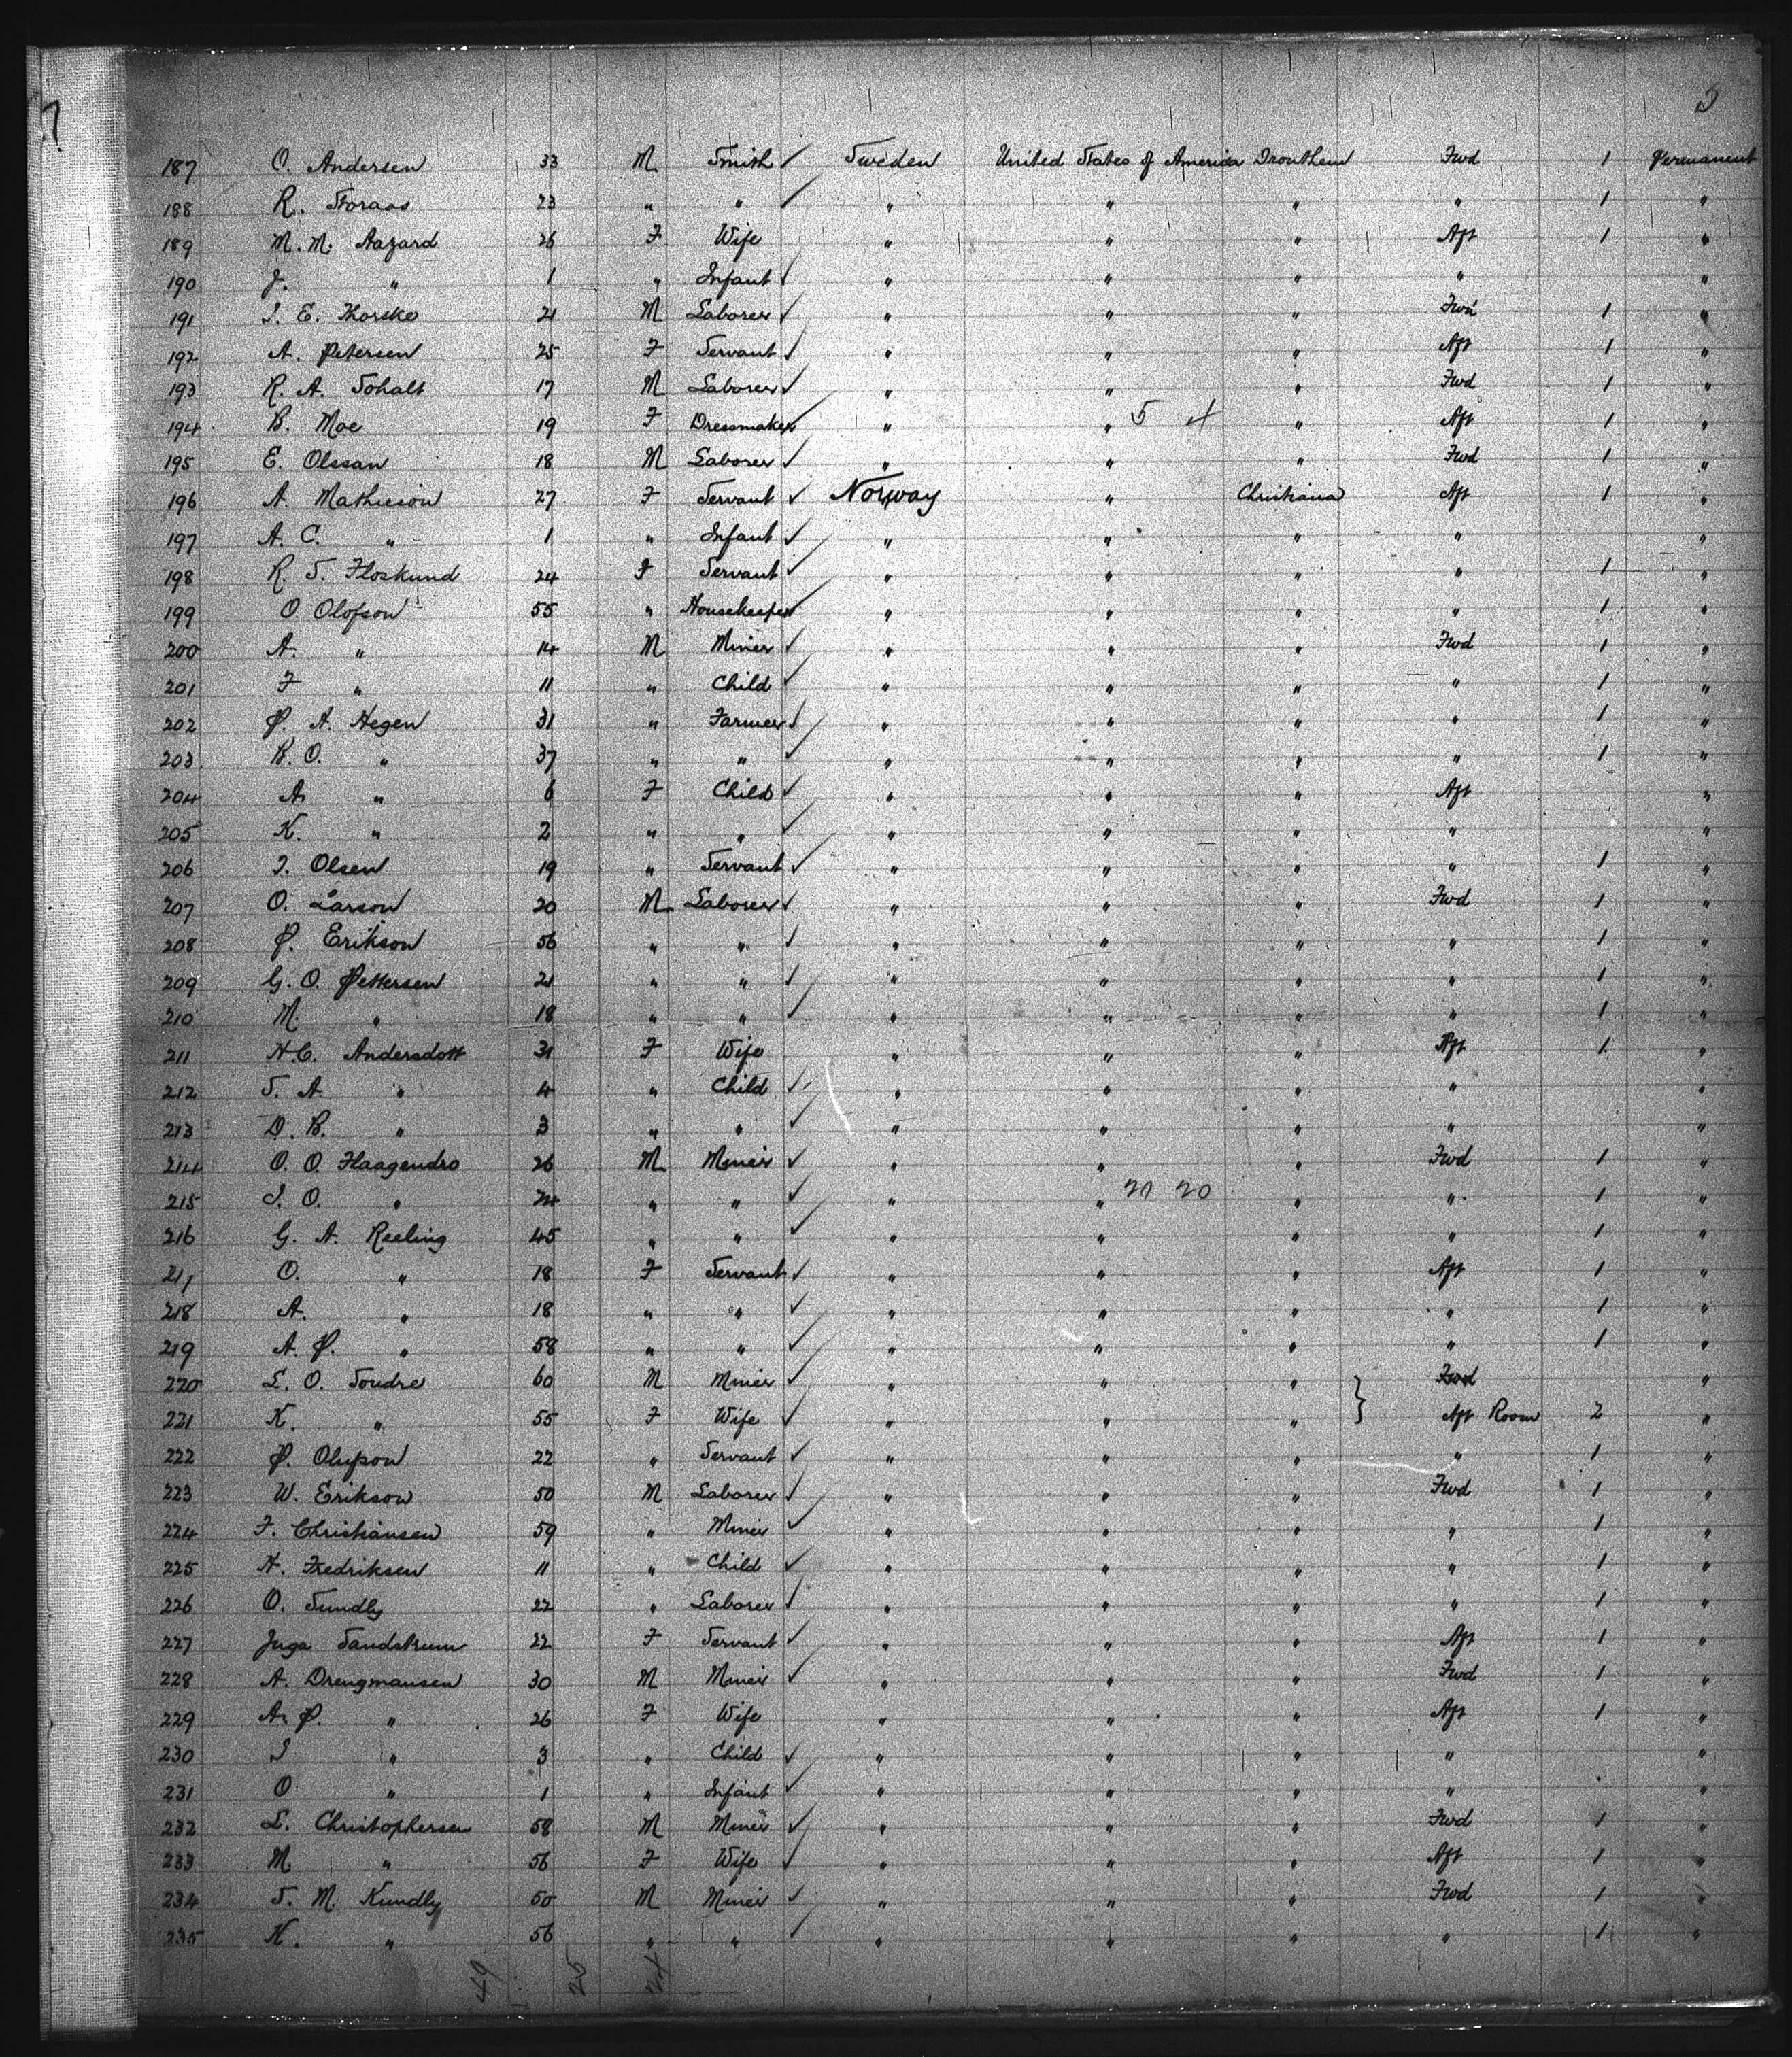 3
187 O. Andersen 33 M Smith ✓ Sweden United States of America Drontheim Fwd 1 Permanent
188 R. Storaas 23 " " ✓ " " " " 1 "
189 M. M. Aazard 26 F Wife " " " Aft 1 "
190 J. " 1 " Infant ✓ " " " " "
191 J. E. Thorske 21 M Laborer ✓ " " " Fwd 1 "
192 A. Petersen 25 F Servant ✓ " " " Aft 1 "
193 R. A. Sohalt 17 M Laborer ✓ " " " Fwd 1 "
194 B. Moe 19 F Dressmaker ✓ " " 5 4 " Aft 1 "
195 E. Olssan 18 M Laborer ✓ " " " Fwd 1 "
196 A. Mathieson 27 F Servant ✓ Norway " Christiana Aft 1 "
197 A. C. " 1 " Infant ✓ " " " " "
198 R. S. Floskund 24 F Servant ✓ " " " " 1 "
199 O. Olofson 55 " Housekeeper ✓ " " " " 1 "
200 A. " 14 M Miner ✓ " " " Fwd 1 "
201 F " 11 " Child ✓ " " " " 1 "
202 P. A. Hegen 31 " Farmer ✓ " " " " 1 "
203 B. O. " 37 " " ✓ " " " " 1 "
204 A. " 6 F Child ✓ " " " Aft "
205 K. " 2 " " ✓ " " " " "
206 J. Olsen 19 " Servant ✓ " " " " 1 "
207 O. Larson 20 M Laborer ✓ " " " Fwd 1 "
208 P. Erikson 56 " " ✓ " " " " 1 "
209 G. O. Pettersen 21 " " ✓ " " " " 1 "
210 M. " 18 " " ✓ " " " " 1 "
211 N. C. Andersdott 31 F Wife " " " Aft 1 "
212 S. A. " 4 " Child ✓ " " " " "
213 D. B. " 3 " " ✓ " " " " "
214 O. O. Flaagendro 26 M Miner ✓ " " " Fwd 1 "
215 J. O. " 24 " " ✓ " " 20 20 " " 1 "
216 G. A. Reeling 45 " " ✓ " " " " 1 "
217 O. " 18 F Servant ✓ " " " Aft 1 "
218 A. " 18 " " ✓ " " " " 1 "
219 A. P. " 58 " " ✓ " " " " 1 "
220 L. O. Soudre 60 M Miner ✓ " " " Fwd "
221 K. " 55 F Wife ✓ " " " Aft Room 2 "
222 P. Olufson 22 " Servant ✓ " " " " 1 "
223 W. Erikson 50 M Laborer ✓ " " " Fwd 1 "
224 F. Christiansen 59 " Miner ✓ " " " " 1 "
225 H. Fredriksen 11 " Child ✓ " " " " 1 "
226 O. Sundby 22 " Laborer ✓ " " " " 1 "
227 Inga Sandstrum 22 F Servant ✓ " " " Aft 1 "
228 A. Drengmansen 30 M Miner ✓ " " " Fwd 1 "
229 A. P. " 26 F Wife " " " Aft 1 "
230 J " 3 " Child ✓ " " " " "
231 O " 1 " Infant ✓ " " " " "
232 L. Christophersen 58 M Miner ✓ " " " Fwd 1 "
233 M " 56 F Wife ✓ " " " Aft 1 "
234 S. M. Kundby 50 M Miner ✓ " " " Fwd 1 "
235 K. " 56 " " ✓ " " " " 1 "
49 25 24